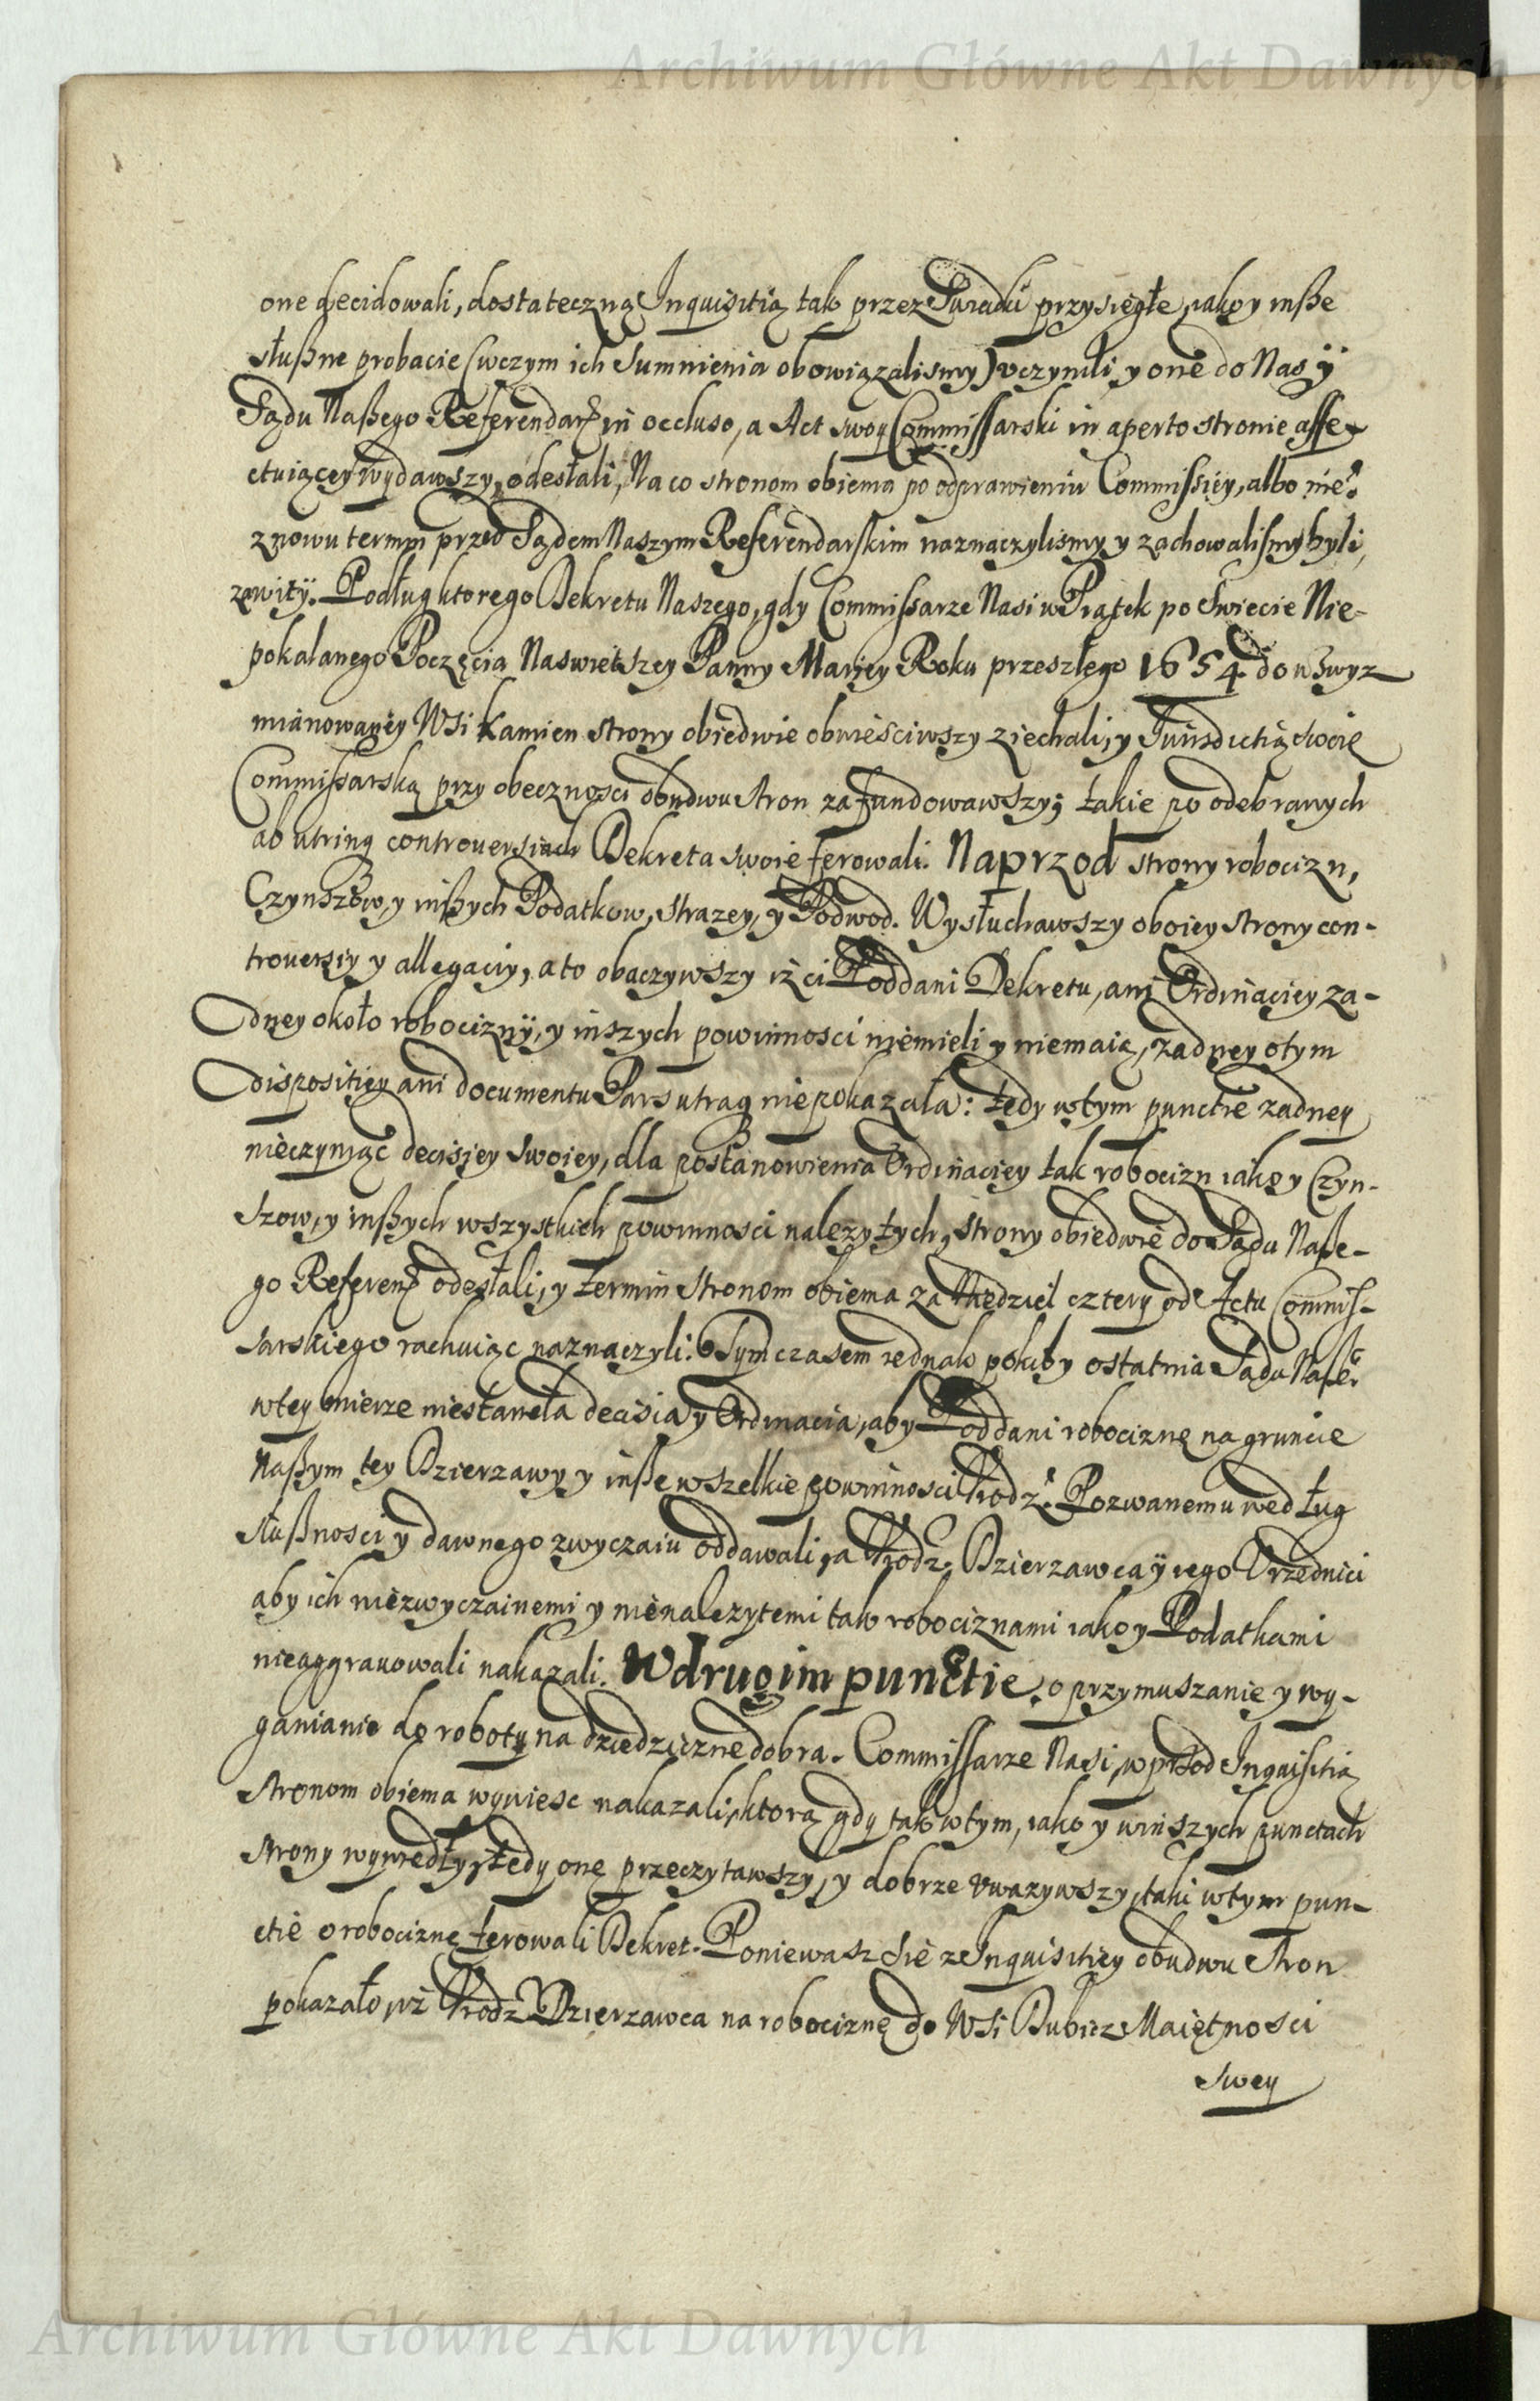 Archiwum Główne Akt Dawnych
one decidowali, dostateczną Inquisitią tak przez Swiadki przysięgłe, iako y inße
słußne probacie (w czym ich Sumnienia obowiązalismy) vczynili, y one do Nas ÿ
Sądu Naßego Referendarz in occluso, a Act swoy Commissarski in aperto stronie affe-
ctuiącey wydawszy, odesłali, Na co stronom obiema po odprawieniu Commissiey, albo nie?
znowu termin przed Sądem Naszym Referendarskim naznaczylismy y zachowalismy byli,
zawitÿ. Podług ktorego Dekretu Naszego, gdy Commissarze Nasi w Piątek po Swiecie Nie-
pokalanego Poczęcia Naswiętszey Panny Mariey Roku przeszłego 1654 do wzwyz
mianowaney Wsi Kamien strony obiedwie obwieściwszy ziechali, y Jurisdictią swoię
Commissarską przy obecznosci obudwu stron zafundowawszy; takie po odebranych
ab utrinq controuersiach Dekreta swoie ferowali. Naprzod strony robocizn,
Czynszow, y inßych Podatkow, strazey, y Podwod. Wysłuchawszy oboiey strony con-
trouersiy y allegaciy, a to obaczywszy iż ci Poddani Dekretu, ani Ordinaciey za-
dney około robociznÿ, y inszych powinnosci niemieli y niemaią, żadney o tym
dispositiey ani documentu Pars utraq niepokazała: tedy w tym punctie zadney
nieczyniąc decisiey swoiey, dla postanowienia Ordinaciey tak robocizn iako y Czyn-
szow, y inßych wszystkich powinnosci nalezytych, strony obiedwie do Sądu Naße-
go Referen odesłali, y termin stronom obiema za Niedziel cztery od Actu Commis-
sarskiego rachuiąc naznaczyli. Tym czasem iednak pokiby ostatnia Sądu Naße
w tey mierze niestanęła decisia y Ordinacia, aby Poddani robociznę na gruncie
Naßym tey Dzierzawy y inße wszelkie powinnosci Vrodz. Pozwanemu według
słußnosci y dawnego zwyczaiu oddawali, a Vrodz. Dzierzawca ÿ iego Vrzędnici
aby ich niezwyczainemi y nienalezytemi tak robociznami iako y Podatkami
nieaggrauowali nakazali. W drugim punctie, o przymuszanie y wy-
ganianie do roboty na dziedziczne dobra. Commissarze Nasi, wprzod Inquisitią
stronom obiema wywiesc nakazali, ktorą gdy tak w tym, iako y w inszych punctach
strony wywiedły, tedy onę przeczytawszy, y dobrze vwazywszy, taki w tym pun-
ctie o robociznę ferowali Dekret. Poniewasz się z Inquisitiey obudwu stron
pokazało, iż Vrodz Dzierzawca na robociznę do Wsi Dubicz Maiętnosci
swey
Archiwum Główne Akt Dawnych